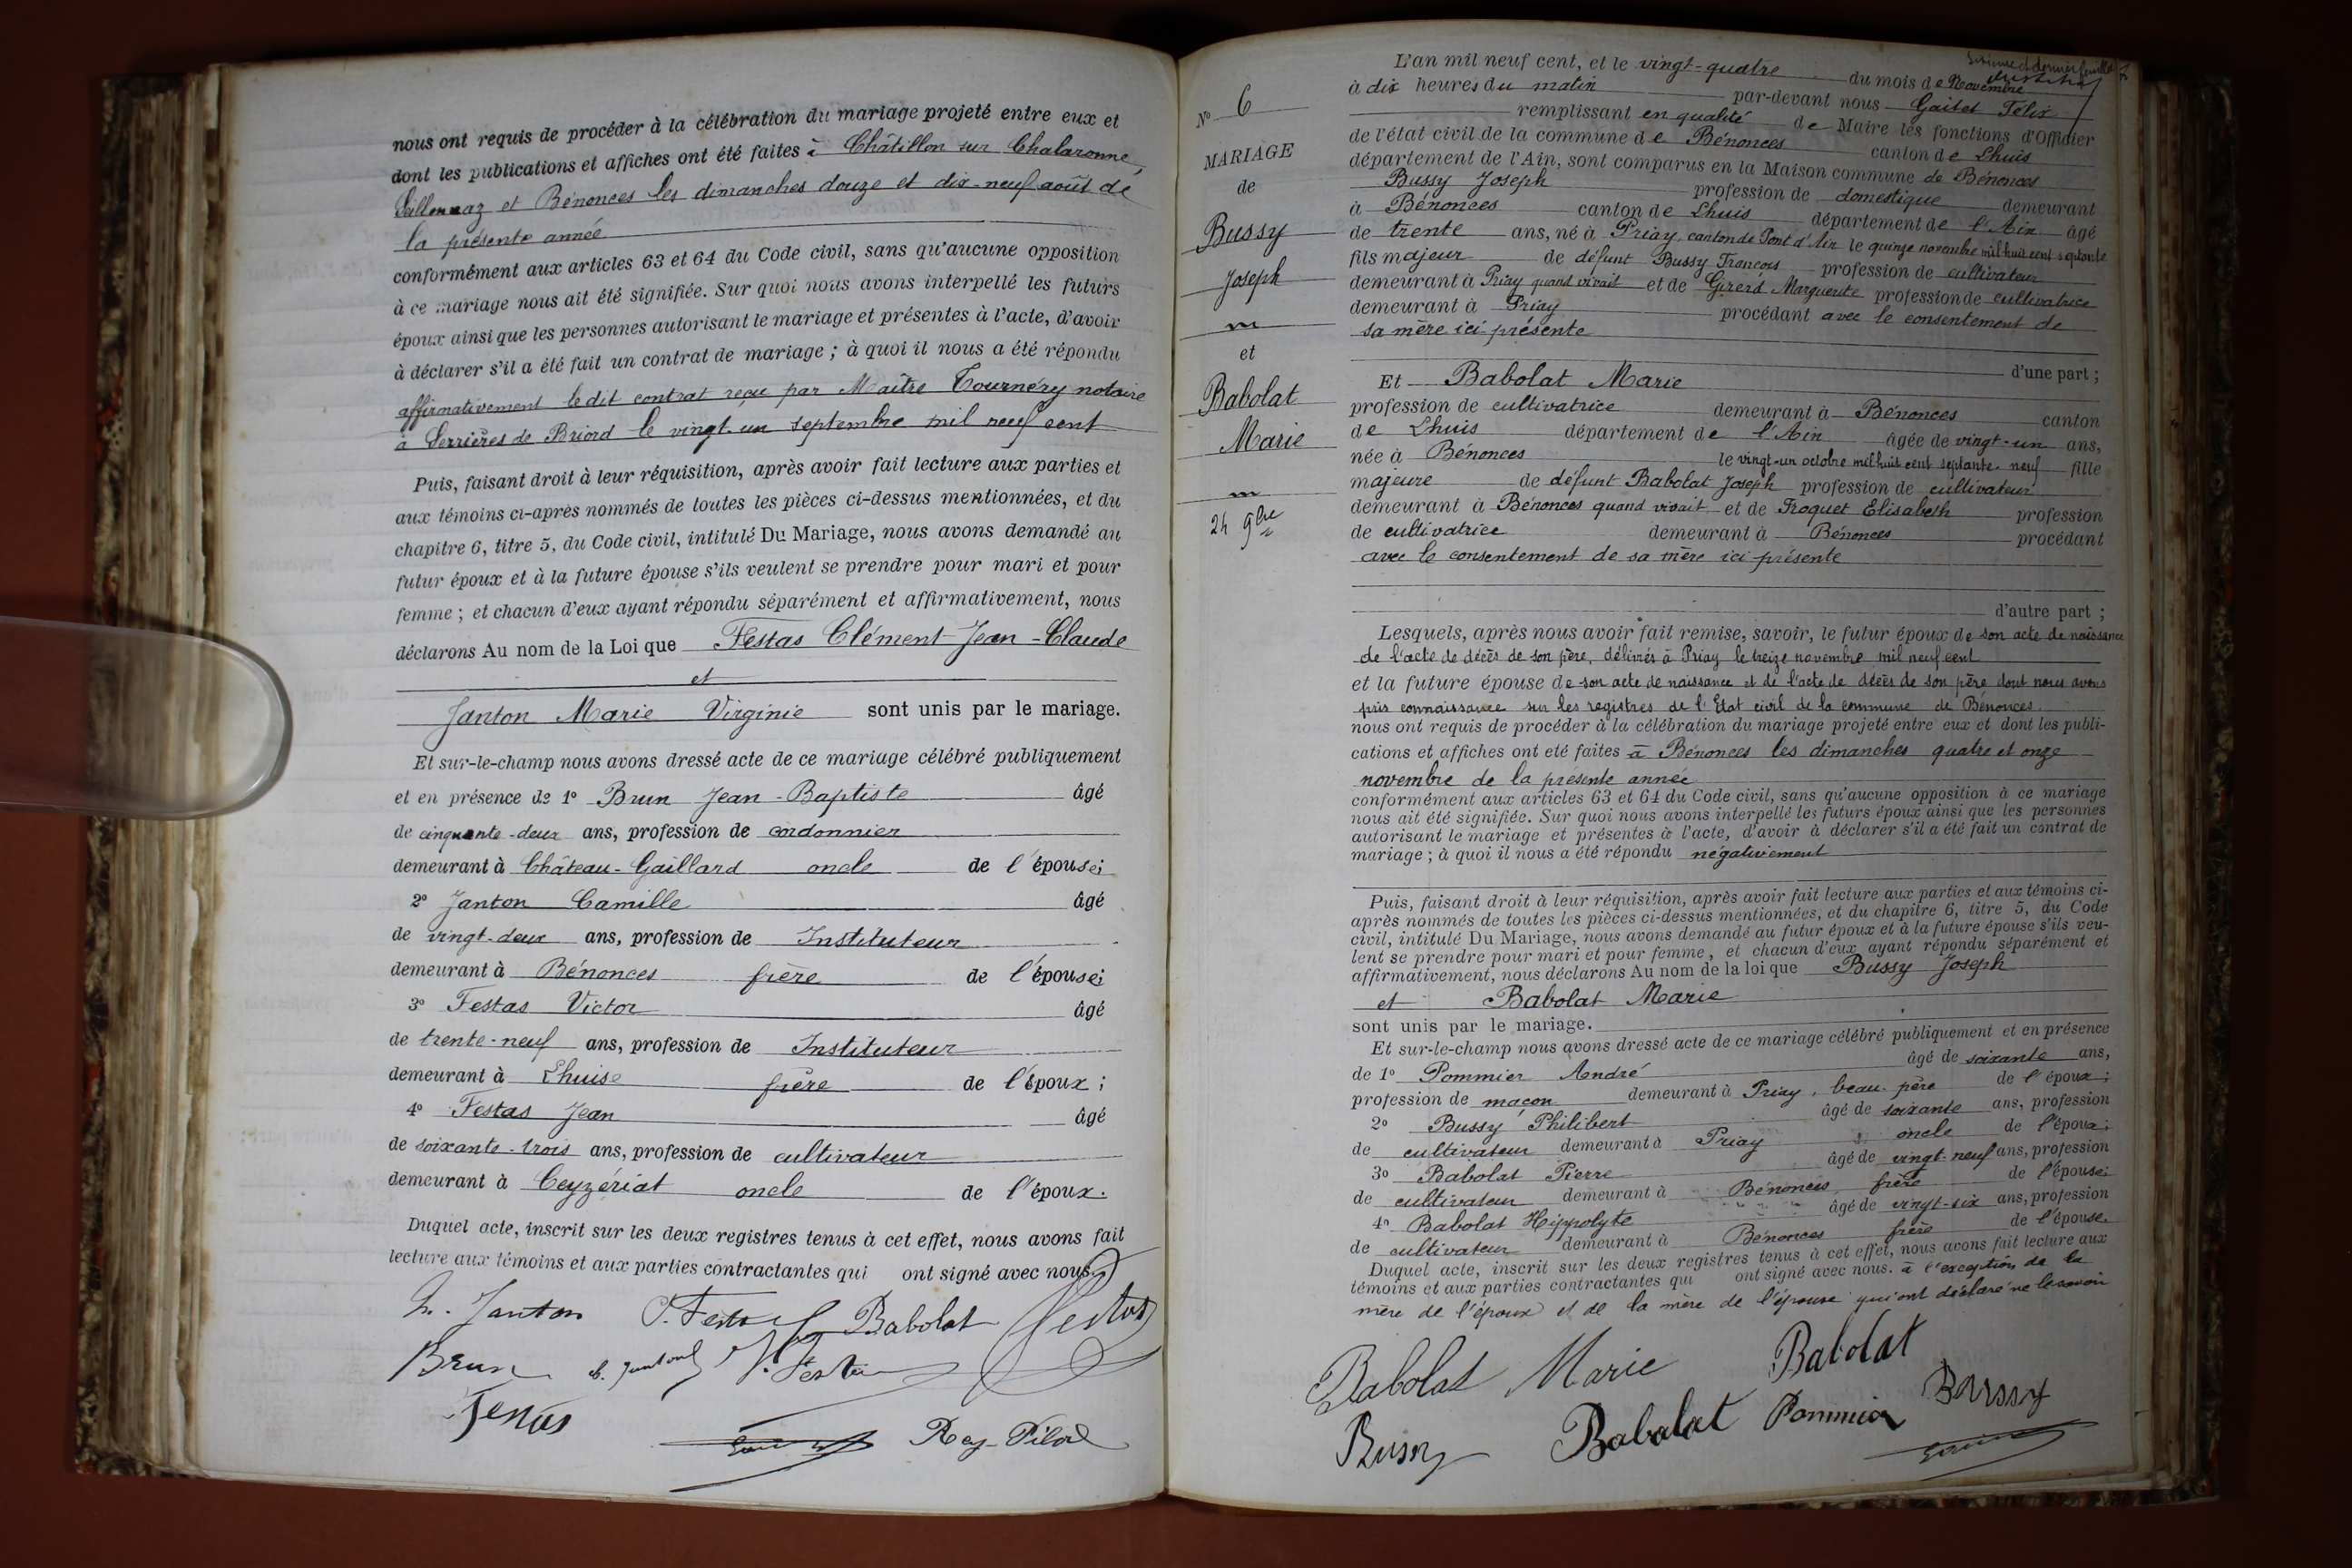 nous ont requis de procéder à la célébration du mariage projeté entre eux et
dont les publications et affiches ont été faites à Châtillon sur Chalaronne,
et Bénonces les dimanches douze et dix-neuf août de
la présente année
conformément aux articles 63 et 64 du Code civil, sans qu'aucune opposition
à ce mariage nous ait été signifiée. Sur quoi nous avons interpellé les futurs
époux ainsi que les personnes autorisant le mariage et présentes à l'acte, d'avoir
à déclarer s'il a été fait un contrat de mariage ; à quoi il nous a été répondu
affirmativement le dit contrat reçu par Maître Tournéry notaire
à Serrières de Briord le vingt-un septembre mil neuf cent
Puis, faisant droit à leur réquisition, après avoir fait lecture aux parties et
aux témoins ci-après nommés de toutes les pièces ci-dessus mentionnées, et du
chapitre 6, titre 5, du Code civil, intitulé Du Mariage, nous avons demandé au
futur époux et à la future épouse s'ils veulent se prendre pour mari et pour
femme ; et chacun d'eux ayant répondu séparément et affirmativement, nous
déclarons Au nom de la Loi que Festas Clément Jean-Claude
et
Janton Marie Virginie sont unis par le mariage.
Et sur-le-champ nous avons dressé acte de ce mariage célébré publiquement
et en présence de 1° Brun Jean-Baptiste âgé
de cinquante-deux ans, profession de cordonnier
demeurant à Château-Gaillard oncle de l'épouse;
2° Janton Camille âgé
de vingt-deux ans, profession de Instituteur
demeurant à Bénonces frère de l'épouse;
3° Festas Victor âgé
de trente-neuf ans, profession de Instituteur
demeurant à Lhuis frère de l'époux ;
4° Festas Jean âgé
de soixante-trois ans, profession de cultivateur
demeurant à Ceyzériat oncle de l'époux.
Duquel acte, inscrit sur les deux registres tenus à cet effet, nous avons fait
lecture aux témoins et aux parties contractantes qui ont signé avec nous.
Janton Babolat Festas
Brun
Rey
N° 6
MARIAGE
de
Bussy
Joseph
et
Babolat
Marie
24 9bre
L'an mil neuf cent, et le vingt-quatre du mois de Novembre
à dix heures du matin par-devant nous Gaillet Félix
remplissant en qualité de Maire les fonctions d'Officier
de l'état civil de la commune de Bénonces canton de Lhuis
département de l'Ain, sont comparus en la Maison commune de Bénonces
Bussy Joseph profession de domestique demeurant
à Bénonces canton de Lhuis département de l'Ain âgé
de trente ans, né à Priay, canton de Pont d'Ain le quinze novembre mil huit cent septante
fils majeur de défunt Bussy François profession de cultivateur
demeurant à Priay quand vivait et de Girerd Marguerite profession de cultivatrice
demeurant à Priay procédant avec le consentement de
sa mère ici présente
d'une part ;
Et Babolat Marie
profession de cultivatrice demeurant à Bénonces canton
de Lhuis département de l'Ain âgée de vingt-un ans,
née à Bénonces le vingt-un octobre mil huit cent septante-neuf fille
majeure de défunt Babolat Joseph profession de cultivateur
demeurant à Bénonces quand vivait et de Froquet Elisabeth profession
de cultivatrice demeurant à Bénonces procédant
avec le consentement de sa mère ici présente
d'autre part ;
Lesquels, après nous avoir fait remise, savoir, le futur époux de son acte de naissance
de l'acte de décès de son père, délivrés à Priay le treize novembre mil neuf cent
et la future épouse de son acte de naissance et de l'acte de décès de son père dont nous avons
pris connaissance sur les registres de l'Etat civil de la commune de Bénonces.
nous ont requis de procéder à la célébration du mariage projeté entre eux et dont les publi-
cations et affiches ont eté faites à Bénonces les dimanches quatre et onze
novembre de la présente année
conformément aux articles 63 et 64 du Code civil, sans qu'aucune opposition à ce mariage
nous ait été signifiée. Sur quoi nous avons interpellé les futurs époux ainsi que les personnes
autorisant le mariage et présentes à l'acte, d'avoir à déclarer s'il a été fait un contrat de
mariage ; à quoi il nous a été répondu négativement
Puis, faisant droit à leur réquisition, après avoir fait lecture aux parties et aux témoins ci-
après nommés de toutes les pièces ci-dessus mentionnées, et du chapitre 6, titre 5, du Code
civil, intitulé Du Mariage, nous avons demandé au futur époux et à la future épouse s'ils veu-
lent se prendre pour mari et pour femme, et chacun d'eux ayant répondu séparément et
affirmativement, nous déclarons Au nom de la loi que Bussy Joseph
et Babolat Marie
sont unis par le mariage.
Et sur-le-champ nous avons dressé acte de ce mariage célébré publiquement et en présence
de 1° Pommier André âgé de soixante ans,
profession de maçon demeurant à Priay, beau-père de l'époux ;
2° Bussy Philibert âgé de soixante ans, profession
de cultivateur demeurant à Priay oncle de l'époux;
3° Babolat Pierre âgé de vingt-neuf ans, profession
de cultivateur demeurant à Bénonces frère de l'épouse;
4° Babolat Hippolyte âgé de vingt-six ans, profession
de cultivateur demeurant à Bénonces frère de l'épouse.
Duquel acte, inscrit sur les deux registres tenus à cet effet, nous avons fait lecture aux
témoins et aux parties contractantes qui ont signé avec nous. à l'exception de la
mère de l'époux et de la mère de l'épouse qui ont déclaré ne le savoir
Babolat Marie Babolat
Bussy Babolat Pommier Bussy